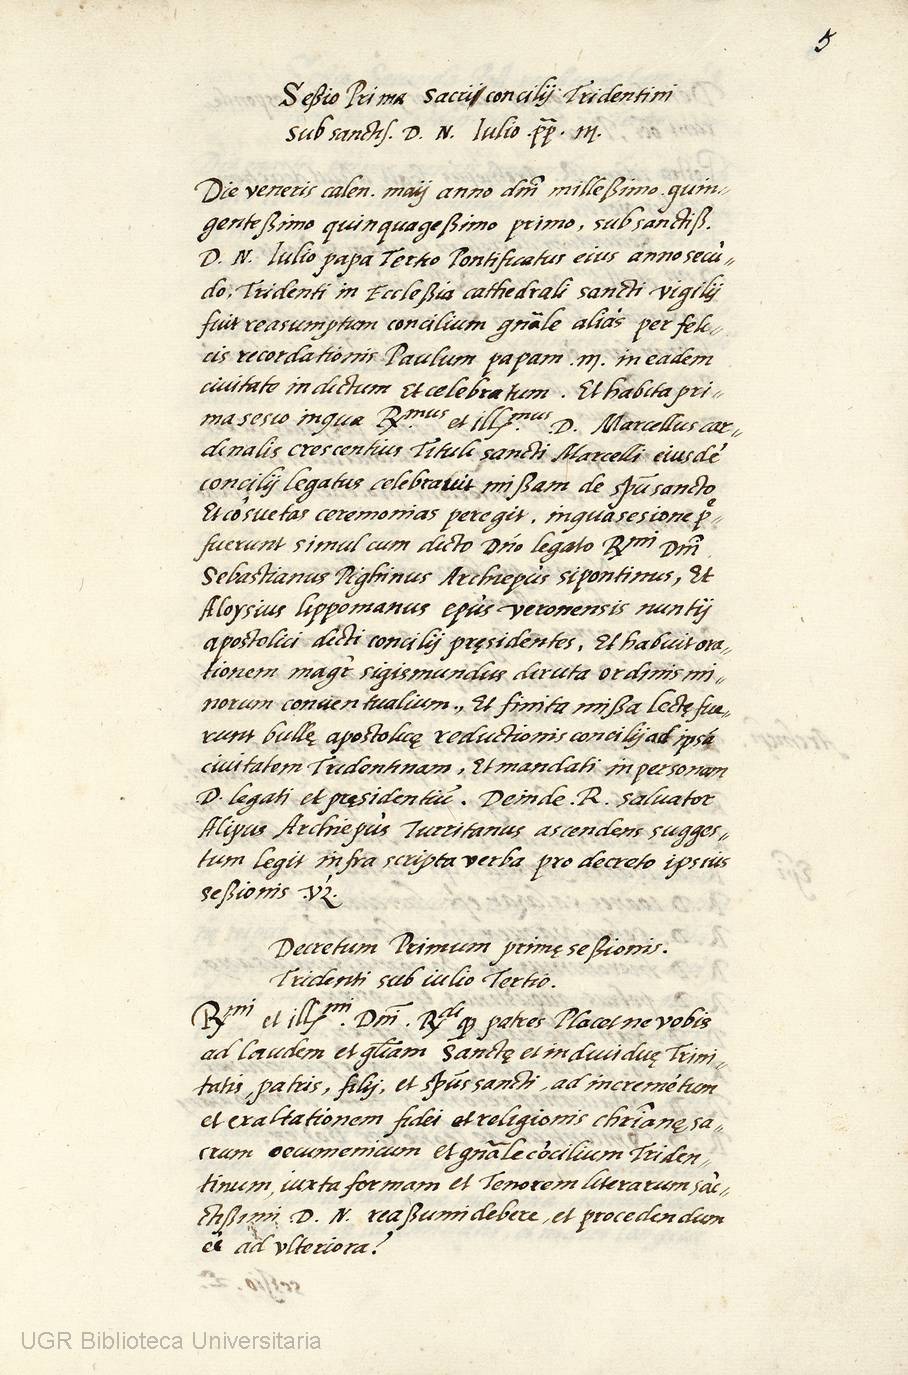 5
Seßio Prima Sacrii concilij Tridentini
sub sanctiſ. D. N. Iulio .p̄p̄. m.
Die veneris calen. maij anno dm̄i milleßimo. quin„
genteßimo quinquageßimo primo, sub sanctiß.
D. N. Iulio papa Tertio Pontificatus eius anno secū„
do, Tridenti in Eccleßia cathedrali sancti vigilij
fuit reasumptum concilium gn̄ale aliás per feli„
cis recordationis Paulum papam .m. in eadem
ciuitate indictum Et celebratum . Et habita pri„
ma sesio in qua Rmus et illſmus D. Marcellus car„
dinalis crescentius Tituli sancti Marcelli eiusdē
concilij legatus celebrauit mißam de spū sancto
Et cōsuetas ceremonias peregit, in qua sesione p̄„
fuerunt simul cum dicto Dn̄o legato Rmi Dm̄i
Sebastianus Pighinus Archiepūs sipontinus, Et
Aloysius lippomanus epūs veronensis nuntij
apostolici dicti concilij pręsidentes, Et habuit ora„
tionem magr̄ sigismundus diruta ordinis mi„
norum conuentualium., Et finita mißa lectę fue„
runt bullę apostolicę reductionis concilij ad ipsā
ciuitatem Tridentinam, Et mandati in personam
D. legati et pręsidentiū. Deinde .R. saluator
Alipus Archiepūs Turritanus ascendens sugges„
tum legit infra scripta verba pro decreto ipsius
seßionis .vz.
Decretum Primum primę seßionis.
Tridenti sub iulio Tertio.
Rmi et illſmi. Dm̄i. Rdi q̃ patres Placet ne vobis
ad laudem et gl̄iam Sanctę et indiuiduę Trini„
tatis, patris, filij, et spūs sancti, ad incremētum
et exaltationem fidei et religionis chr̄ianę, sa„
crum oecumenicum et gn̄ale cōcilium Triden„
tinum, iuxta formam et Tenorem literarum sāc„
tißimi D. N. reaßumi debere, et procedendum
eē ad vlteriora?
UGR Biblioteca Universitaria